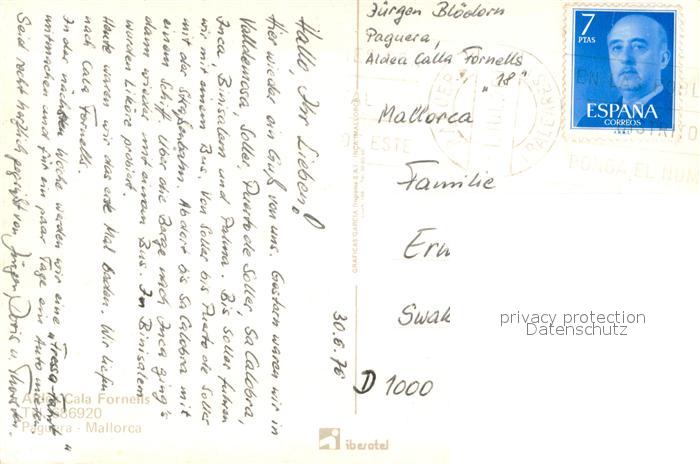 Hallo, Ihr Lieben!
Hier wieder ein Gruß von uns. Gestern waren wir in
Valldemosa, Soller, Puerto de Soller, Sa Calobra,
Inca, Binisalem und Palma. Bis Soller fuhren
wir mit einem Bus. Von Soller bis Puerto de Soller
mit der Straßenbahn. Ab dort bis Sa Calobra mit
einem Schiff. Über die Berge nach Inca ging's
dann wieder mit einem Bus. In Binisalem
wurden Liköre probiert.
Heute waren wir das erste Mal Baden. Wir liefen
nach Cala Fornells.
In der nächsten Woche werden wir eine "Fressfahrt"
mitmachen und für ein paar Tage ein Auto mieten.
Seid recht herzlich gegrüßt von Jürgen, Doris u. Thorsten.
30.6.76
Jürgen Blödorn
Paguera,
Aldea Calla Fornells
"18"
Mallorca
Familie
Erw
Swak
D 1000
7
PTAS
ESPAÑA
CORREOS
PONGA EL NUM
privacy protection
Datenschutz
Aldea Cala Fornells
686920
Paguera - Mallorca
iberotel